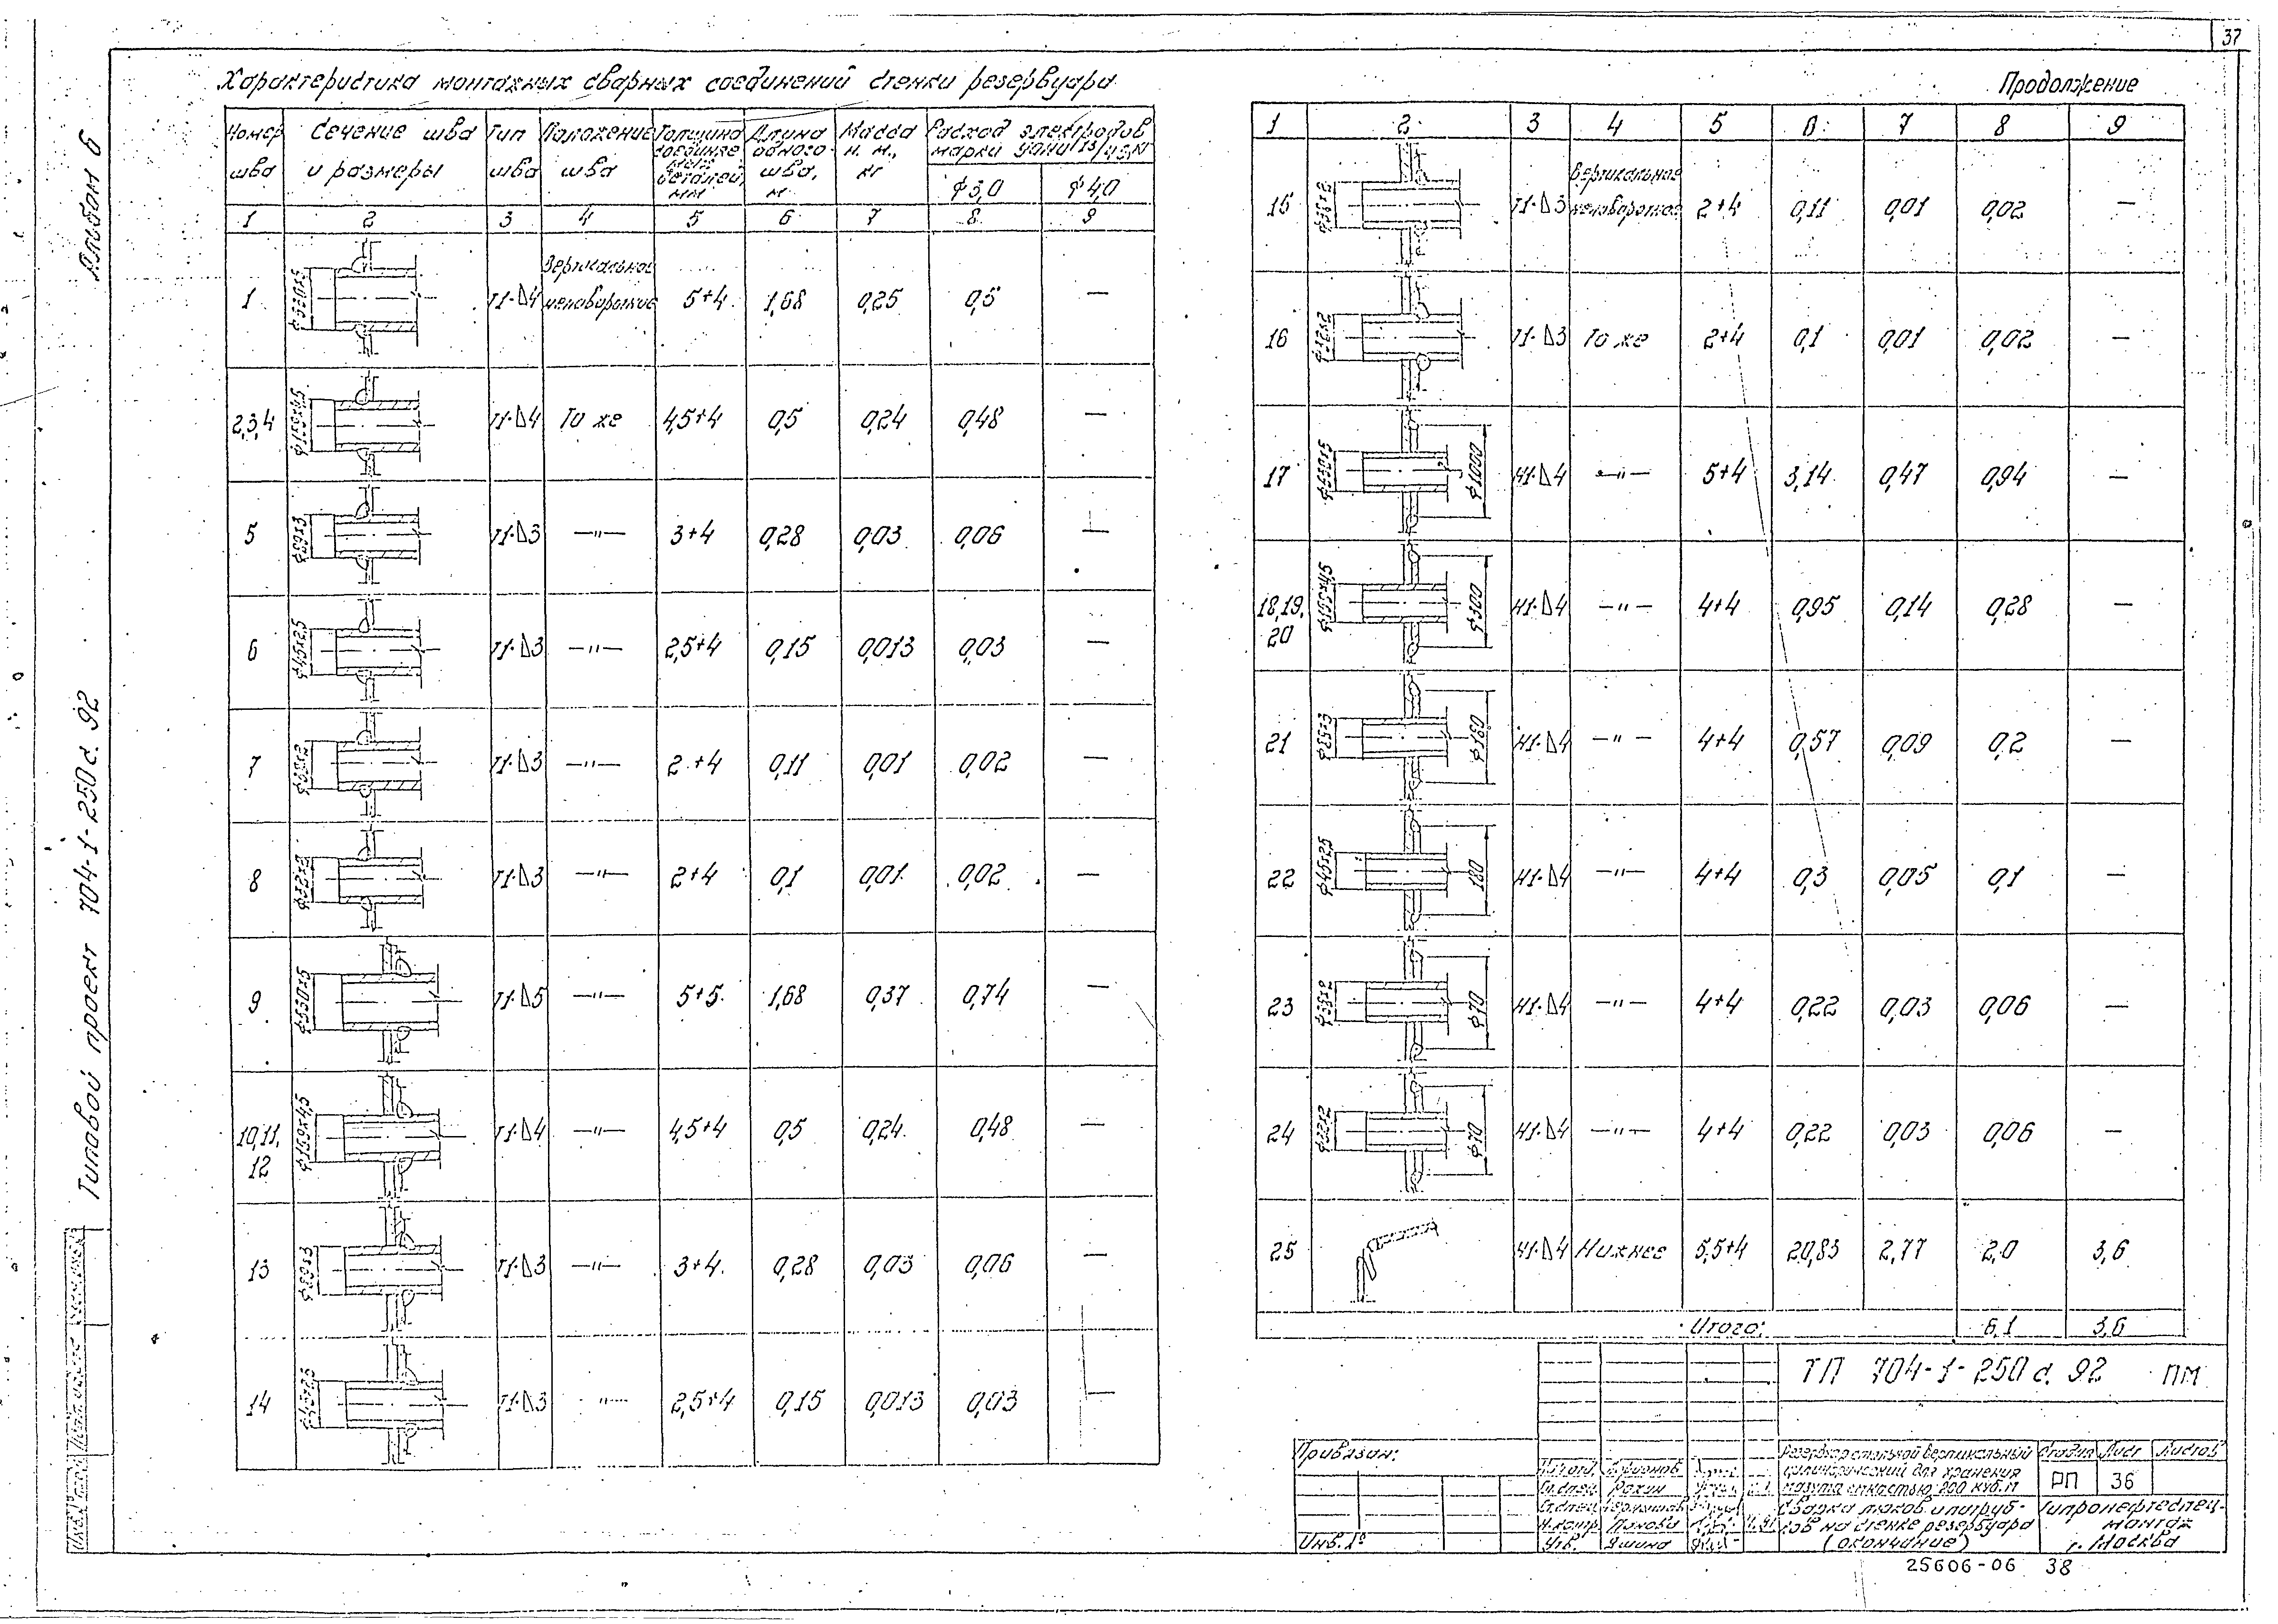 37
Альбом 6
Типовой проект 704-1-250 с. 92
Характеристика монтажных сварных соединений стенки резервуара
Номер шва | Сечение шва и размеры | Тип шва | Положение шва | Толщина соединяемых деталей, мм | Длина одного шва, м | Масса н. м., кг | Расход электродов марки УОНИ 13/45, кг
ф 3,0 | ф 4,0
1 | 2 | 3 | 4 | 5 | 6 | 7 | 8 | 9
1 | ф530х5 | Т1-Δ4 | Вертикальное неповоротное | 5+4 | 1,68 | 0,25 | 0,5 | —
2,3,4 | ф159х4,5 | Т1-Δ4 | То же | 4,5+4 | 0,5 | 0,24 | 0,48 | —
5 | ф89х3 | Т1-Δ3 | —"— | 3+4 | 0,28 | 0,03 | 0,06 | —
6 | ф45х2,5 | Т1-Δ3 | —"— | 2,5+4 | 0,15 | 0,013 | 0,03 | —
7 | Т1-Δ3 | —"— | 2+4 | 0,11 | 0,01 | 0,02 | —
8 | ф32х2 | Т1-Δ3 | —"— | 2+4 | 0,1 | 0,01 | 0,02 | —
9 | ф530х5 | Т1-Δ5 | —"— | 5+5 | 1,68 | 0,37 | 0,74 | —
10,11, 12 | ф159х4,5 | Т1-Δ4 | —"— | 4,5+4 | 0,5 | 0,24 | 0,48 | —
13 | ф89х3 | Т1-Δ3 | —"— | 3+4 | 0,28 | 0,03 | 0,06 | —
14 | ф45х2,5 | Т1-Δ3 | —"— | 2,5+4 | 0,15 | 0,013 | 0,03 | —
Продолжение
1 | 2 | 3 | 4 | 5 | 6 | 7 | 8 | 9
15 | Т1-Δ3 | Вертикальное неповоротное | 2+4 | 0,11 | 0,01 | 0,02 | —
16 | Т1-Δ3 | То же | 2+4 | 0,1 | 0,01 | 0,02 | —
17 | ф530х5 | ф1000 | Н1-Δ4 | —"— | 5+4 | 3,14 | 0,47 | 0,94 | —
18,19, 20 | ф159х4,5 | ф300 | Н1-Δ4 | —"— | 4+4 | 0,95 | 0,14 | 0,28 | —
21 | ф89х3 | Н1-Δ4 | —"— | 4+4 | 0,57 | 0,09 | 0,2 | —
22 | ф45х2,5 | Н1-Δ4 | —"— | 4+4 | 0,3 | 0,05 | 0,1 | —
23 | ф70 | Н1-Δ4 | —"— | 4+4 | 0,22 | 0,03 | 0,06 | —
24 | ф32х2 | ф70 | Н1-Δ4 | —"— | 4+4 | 0,22 | 0,03 | 0,06 | —
25 | Н1-Δ4 | Нижнее | 5,5+4 | 20,83 | 2,77 | 2,0 | 3,6
Итого: | 6,1 | 3,6
ТП 704-1-250 с. 92 ПМ
Привязан:
Инв. №
Нач.отд.
Гл.спец. Рохин
Гл.спец.
Н.контр. Панова
Утв. Яшина
Резервуар стальной вертикальный
цилиндрический для хранения
мазута емкостью 200 куб.м
Стадия | Лист | Листов
РП | 36
Сварка люков и патруб-
ков на стенке резервуара
(окончание)
Гипронефтеспец-
монтаж
г. Москва
25606-06 38